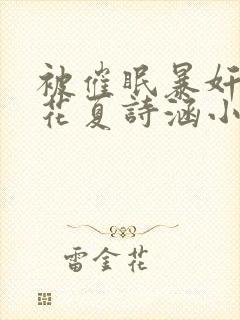 被催眠暴奸
花夏詩涵小
雷金花